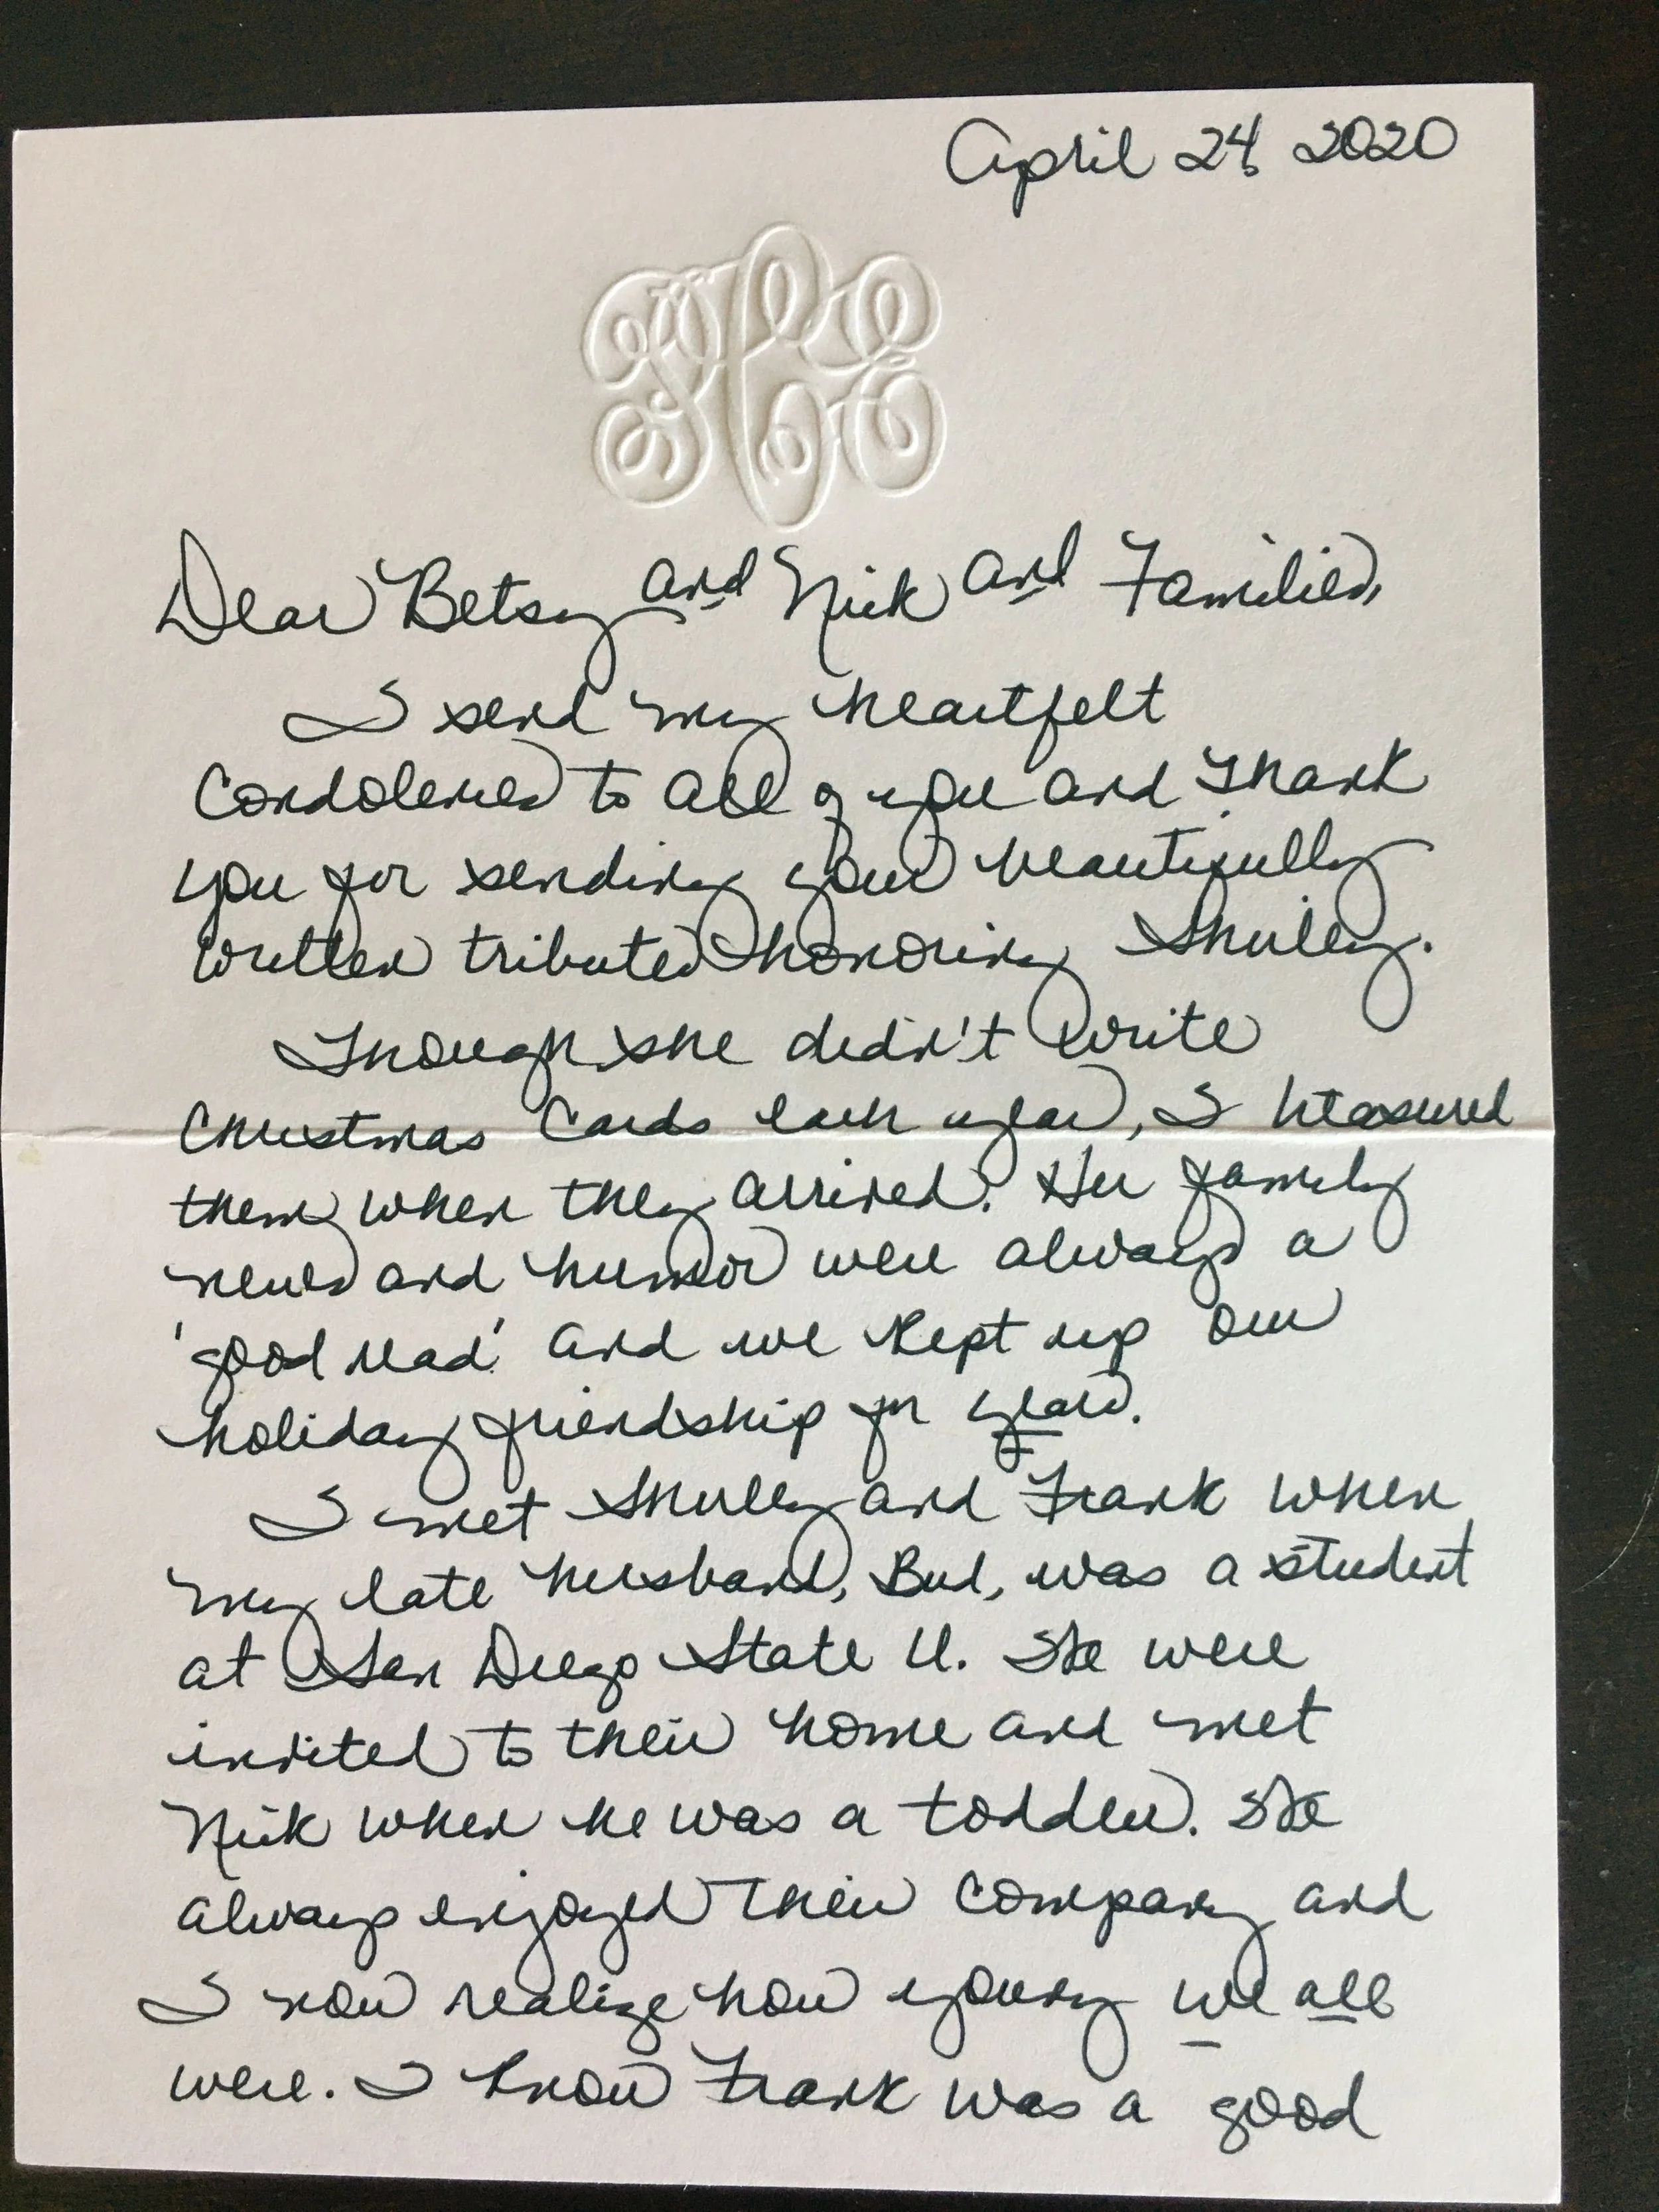 April 24, 2020
Dear Betsy and Nick and Families,
I send my heartfelt
Condolences to all of you and thank
you for sending your beautifully
written tributes honoring Shirley.
Though she didn't write
Christmas Cards each year, I treasured
them when they arrived. Her family
news and humor were always a
'good read' and we kept up our
holiday friendship for years.
I met Shirley and Frank when
my late husband, Bud, was a student
at San Diego State U. We were
invited to their home and met
Nick when he was a toddler. We
always enjoyed their company and
I now realize how young we all
were. I know Frank was a good